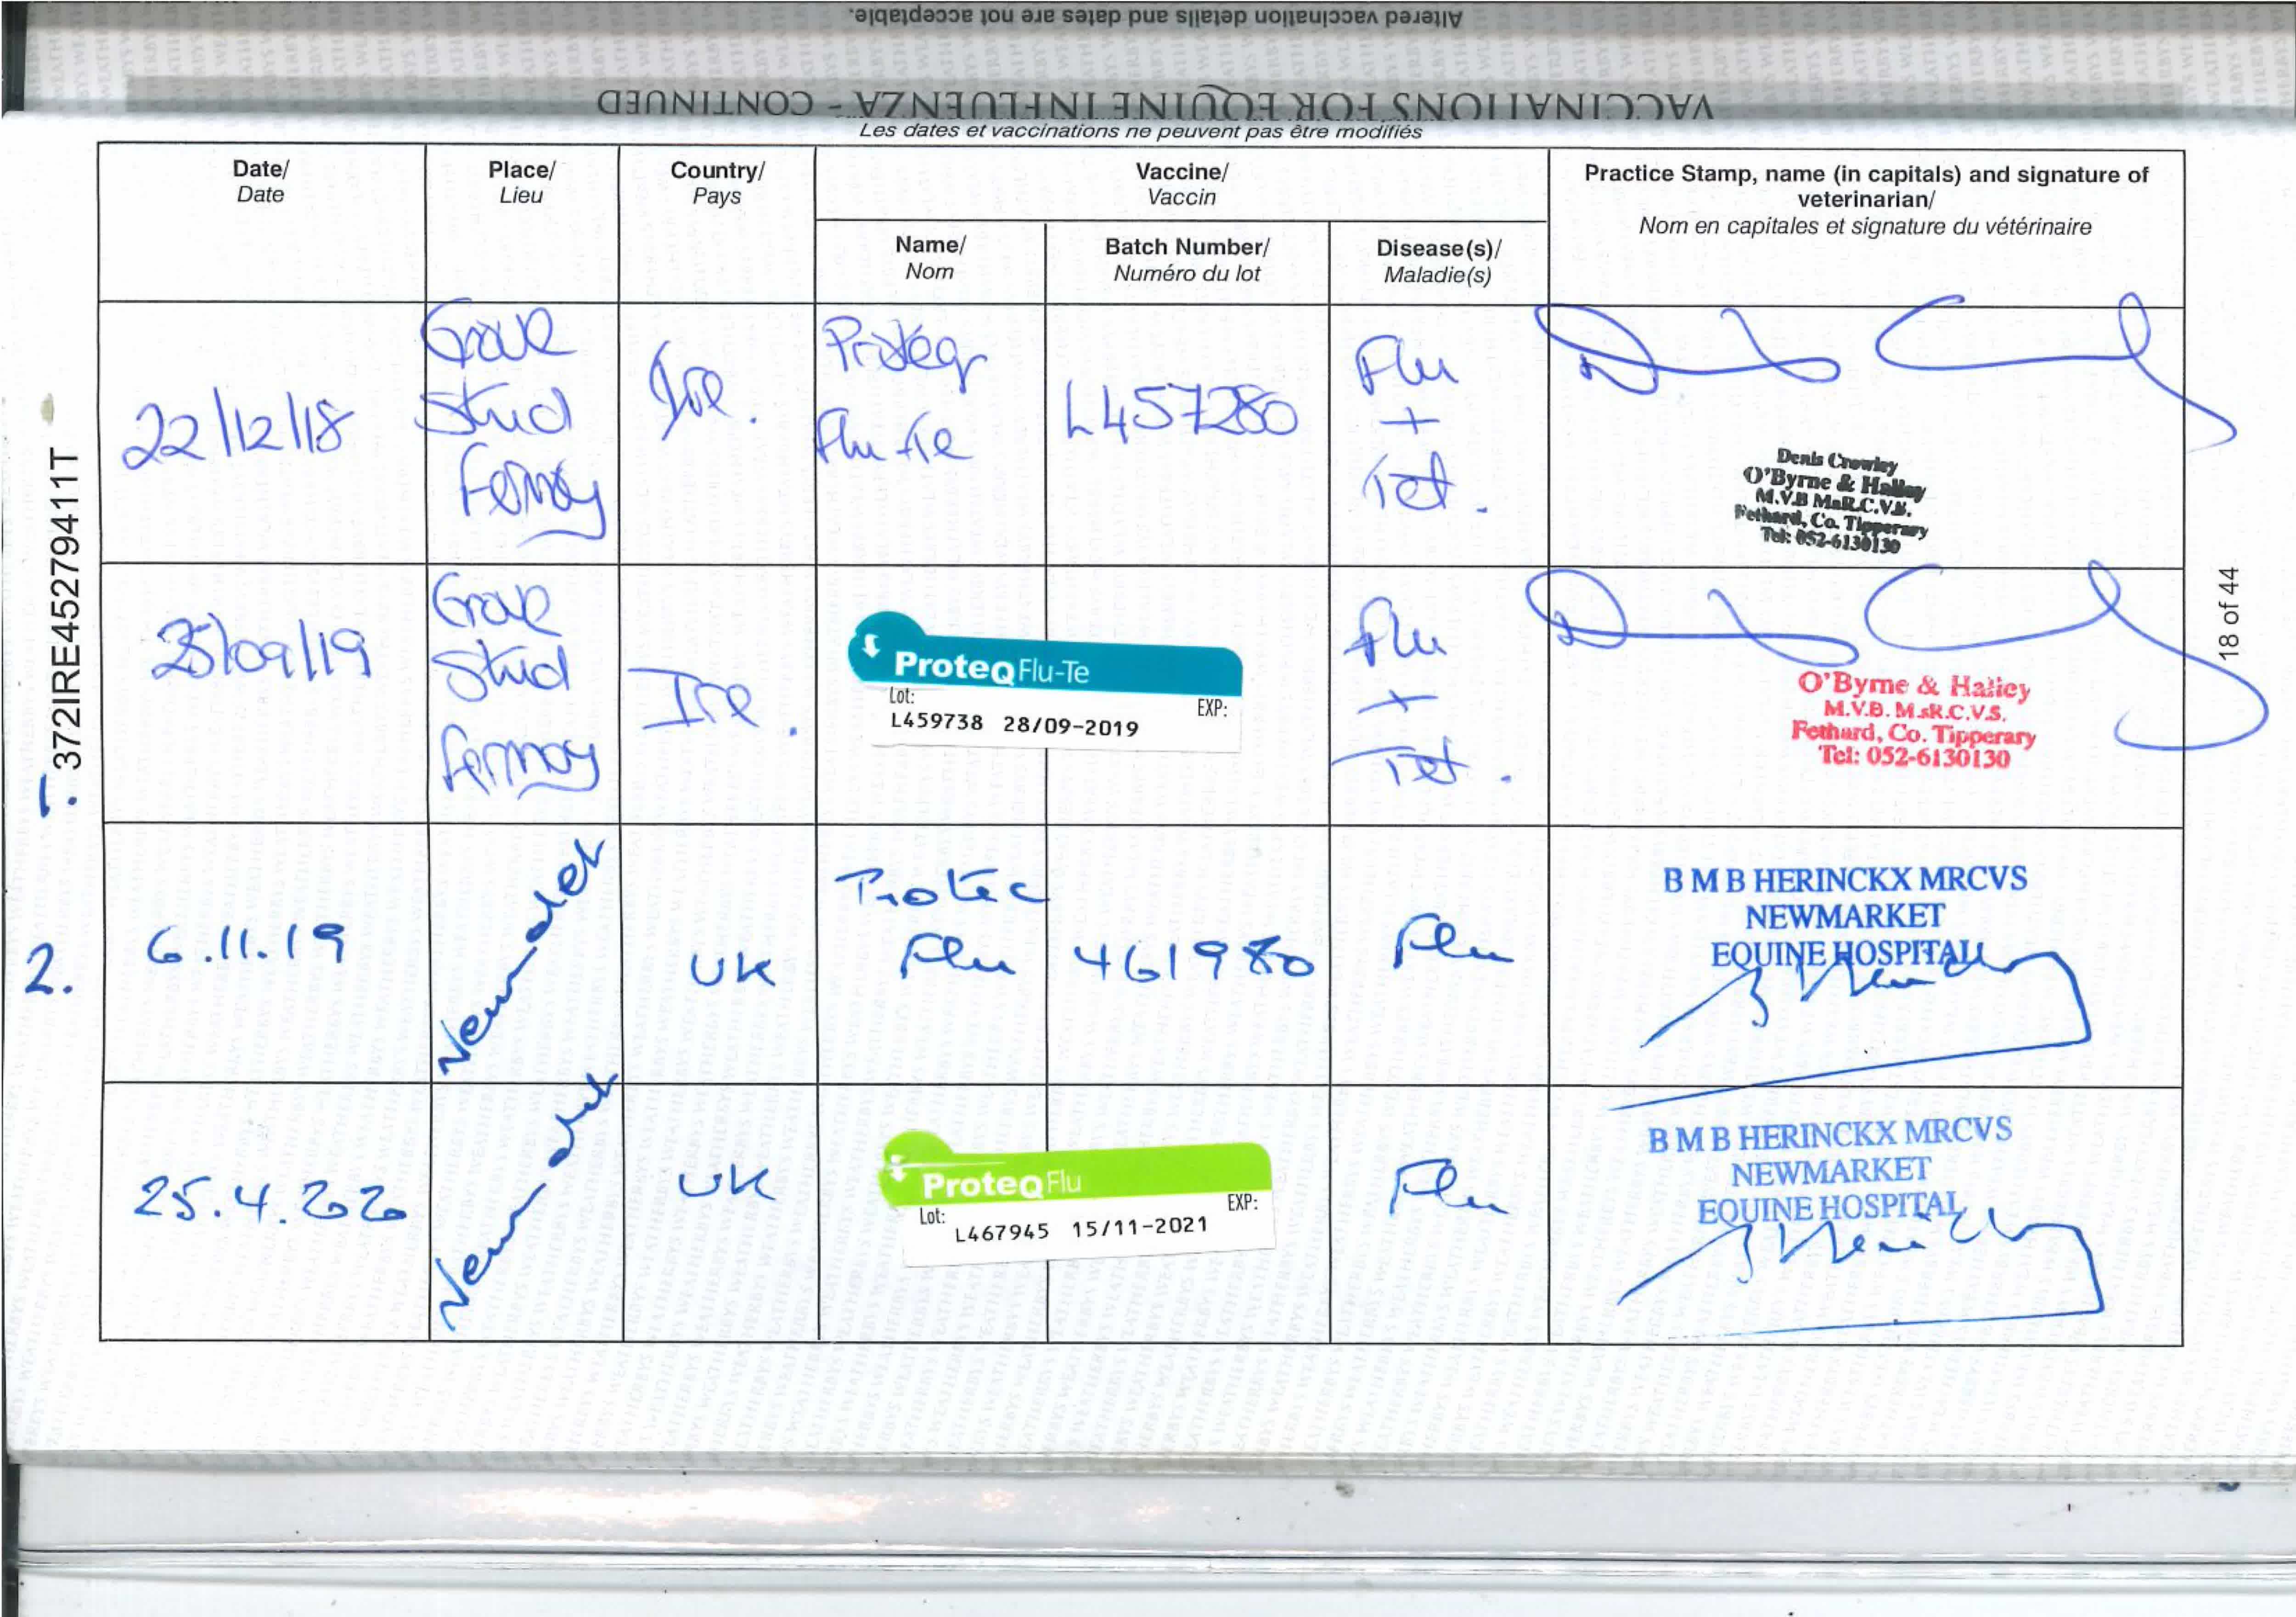 Altered vaccination details and dates are not acceptable.
VACCINATIONS FOR EQUINE INFLUENZA - CONTINUED
Les dates et vaccinations ne peuvent pas être modifiés
Date/
Date
Place/
Lieu
Country/
Pays
Vaccine/
Vaccin
Name/
Nom
Batch Number/
Numéro du lot
Disease(s)/
Maladie(s)
Practice Stamp, name (in capitals) and signature of
veterinarian/
Nom en capitales et signature du vétérinaire
22/12/18
Grove
Stud
Fermoy
Ire.
Proteq
Flu-te
L457280
Flu
+
Tet.
Denis Crowley
O'Byrne & Halley
M.V.B M.R.C.V.S.
Fethard, Co. Tipperary
Tel: 052-6130130
1.
25/09/19
Grove
Stud
Fermoy
Ire.
ProteQ Flu-Te
Lot:
EXP:
L459738 28/09-2019
Flu
+
Tet.
O'Byrne & Halley
M.V.B. M.sR.C.V.S.
Fethard, Co. Tipperary
Tel: 052-6130130
2.
6.11.19
Newmarket
UK
Protec
Flu
461980
Flu
B M B HERINCKX MRCVS
NEWMARKET
EQUINE HOSPITAL
25.4.2020
Newmarket
UK
ProteQ Flu
Lot:
EXP:
L467945 15/11-2021
Flu
B M B HERINCKX MRCVS
NEWMARKET
EQUINE HOSPITAL
372IRE45279411T
18 of 44